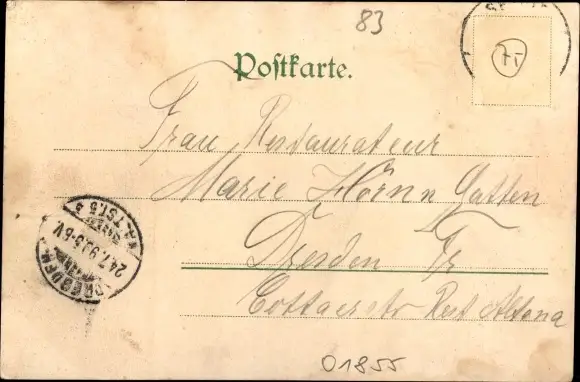 83
75
Postkarte.
Frau Restaurateur
Marie Hörnn Gatten
Dresden Fr
Cottaerstr Rest Altona
DRESDEN
ALTST. 5
24.7.99.
5-6V.
01855